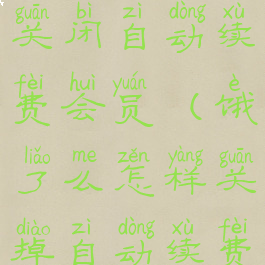 guān bì zì dòng xù
关闭自动续
fèi huì yuán è
费会员（饿
liǎo me zěn yàng guān
了么怎样关
diào zì dòng xù fèi
掉自动续费